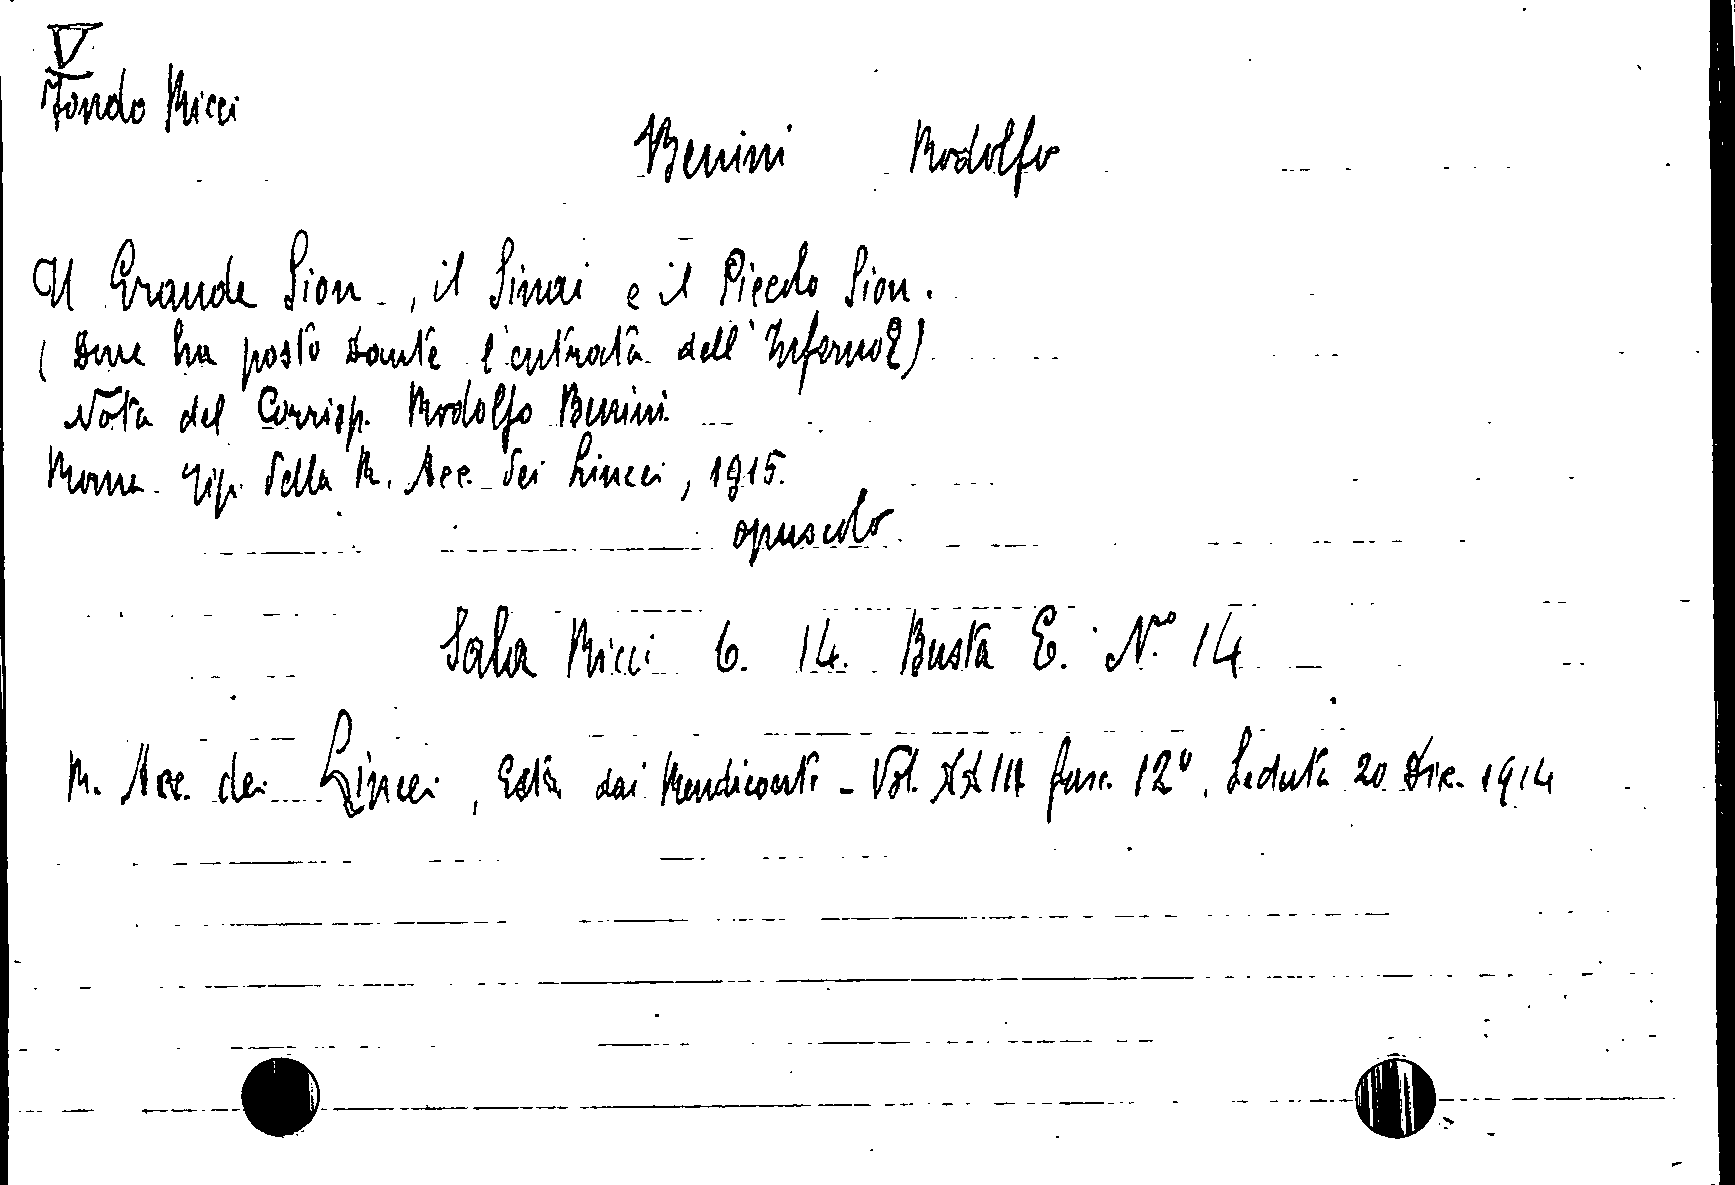 V
Fondo Ricci
Benini Rodolfo
Il Grande Sion, il Sinai e il Piccolo Sion.
(Dove ha posto Dante l'entrata dell'Inferno?)
Nota del Corrisp. Rodolfo Benini
Roma. Tip. della R. Acc. dei Lincei, 1915.
opuscolo
Sala Ricci 6. 14. Busta E. N.º 14
R. Acc. dei Lincei, Estr. dai Rendiconti - Vol. XXIII fasc. 12º. Seduta 20 Dic. 1914